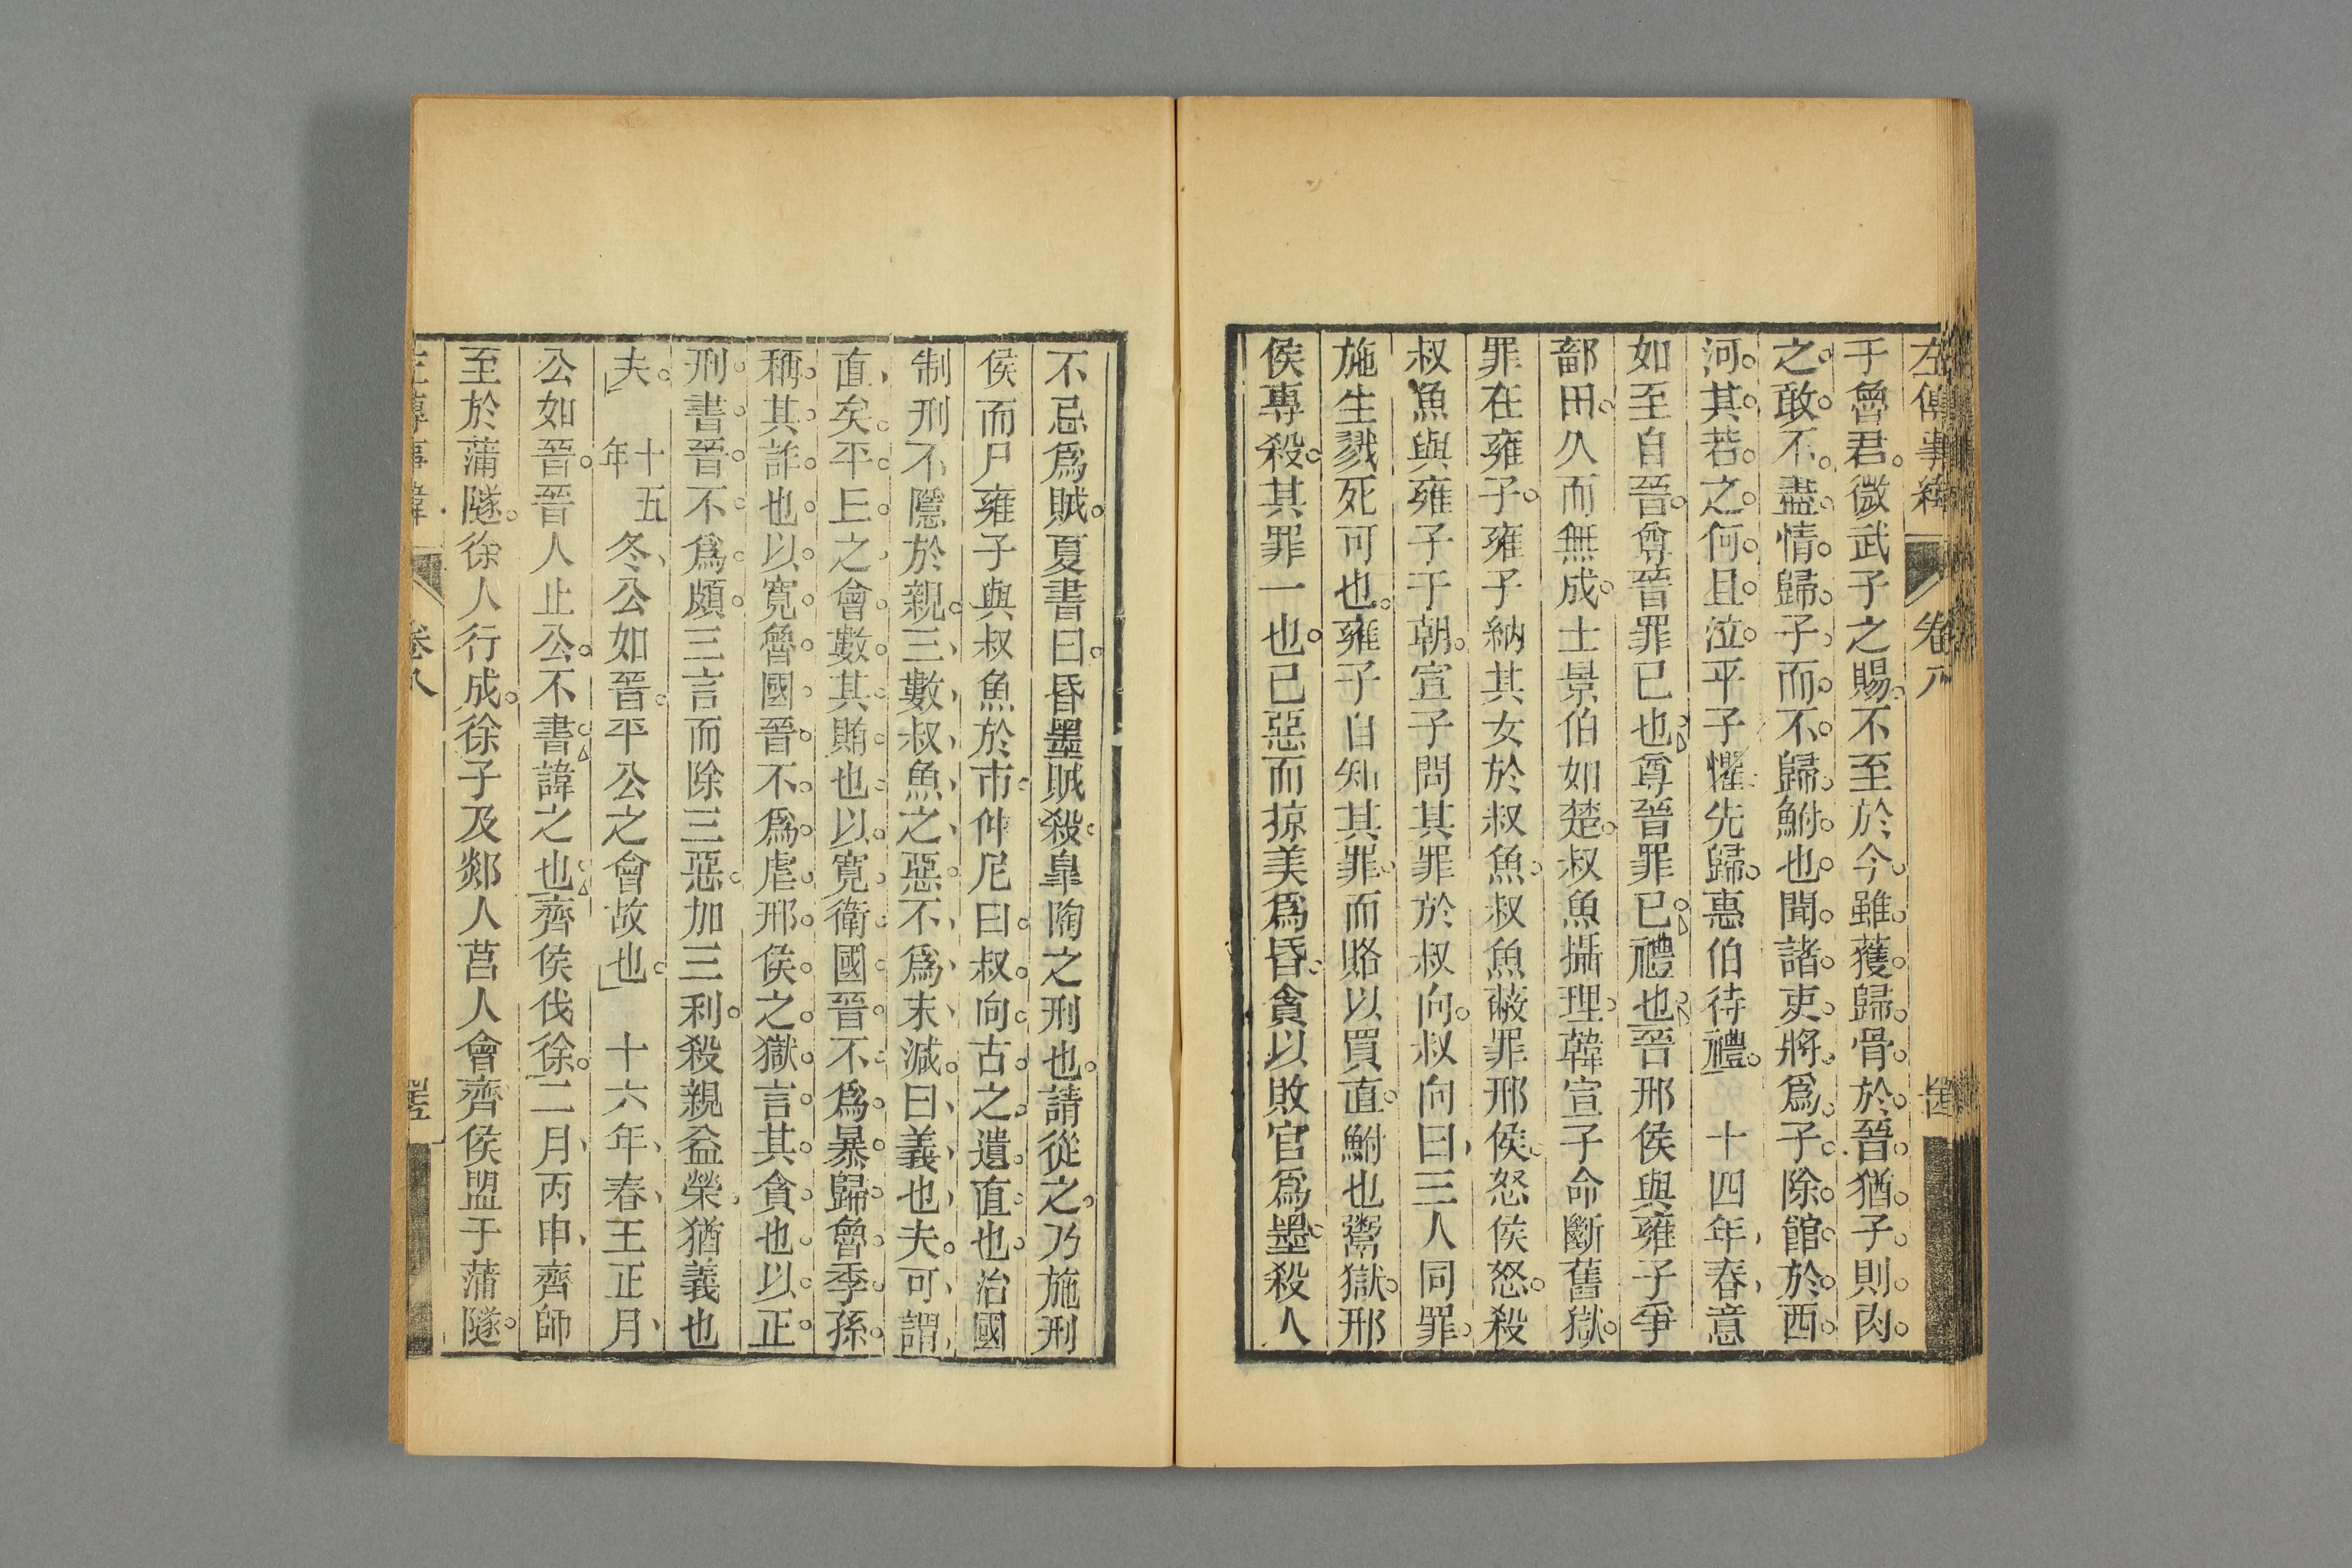 左傳事緯 卷八
于魯君。微武子之賜。不至於今。雖獲歸骨。於晉。猶子。則肉。
之。敢。不。盡情。歸。子。而。不。歸。鮒。也。聞。諸。吏。將。爲。子。除。館。於。西。
河。其。若。之。何。且。泣。平子懼。先歸。惠伯待禮。 十四年、春、意
如至自晉。尊晉罪已也。尊晉罪已。禮也。晉邢侯與雍子爭
鄐田。久而無成。士景伯如楚。叔魚攝理。韓宣子命斷舊獄。
罪在雍子。雍子納其女於叔魚。叔魚蔽罪邢侯。邢侯怒。殺
叔魚與雍子于朝。宣子問其罪於叔向。叔向曰、三人同罪。
施生戮死可也。雍子自知其罪。而賂以買直。鮒也鬻獄。邢
侯專殺。其罪一也。已惡而掠美爲昏。貪以敗官爲墨。殺人
不忌爲賊。夏書曰。昏墨賊殺。皐陶之刑也。請從之。乃施刑
侯而尸雍子與叔魚於市。仲尼曰。叔向。古。之。遺。直。也。治國
制刑不隱於親。三、數、叔、魚、之、惡。不、爲、末、減。曰、義、也、夫。可、謂、
直、矣。平。上。之、會。數。其。賄。也。以。寬。衛國。晉。不。爲。暴。歸。魯。季。孫。
稱。其。詐。也。以。寬。魯。國。晉。不。爲。虐。邢。侯。之。獄。言。其。貪。也。以。正。
刑。書。晉。不。爲。頗。三言而除三惡。加三利。殺親益榮。猶義也
夫。 十五年冬、公如晉。平公之會故也。 十六年、春、王正月、
公如晉。晉人止公。不書。諱之也。齊侯伐徐。二月、丙申、齊師
至於蒲隧。徐人行成。徐子及郯人莒人會齊侯盟于蒲隧。
卷八